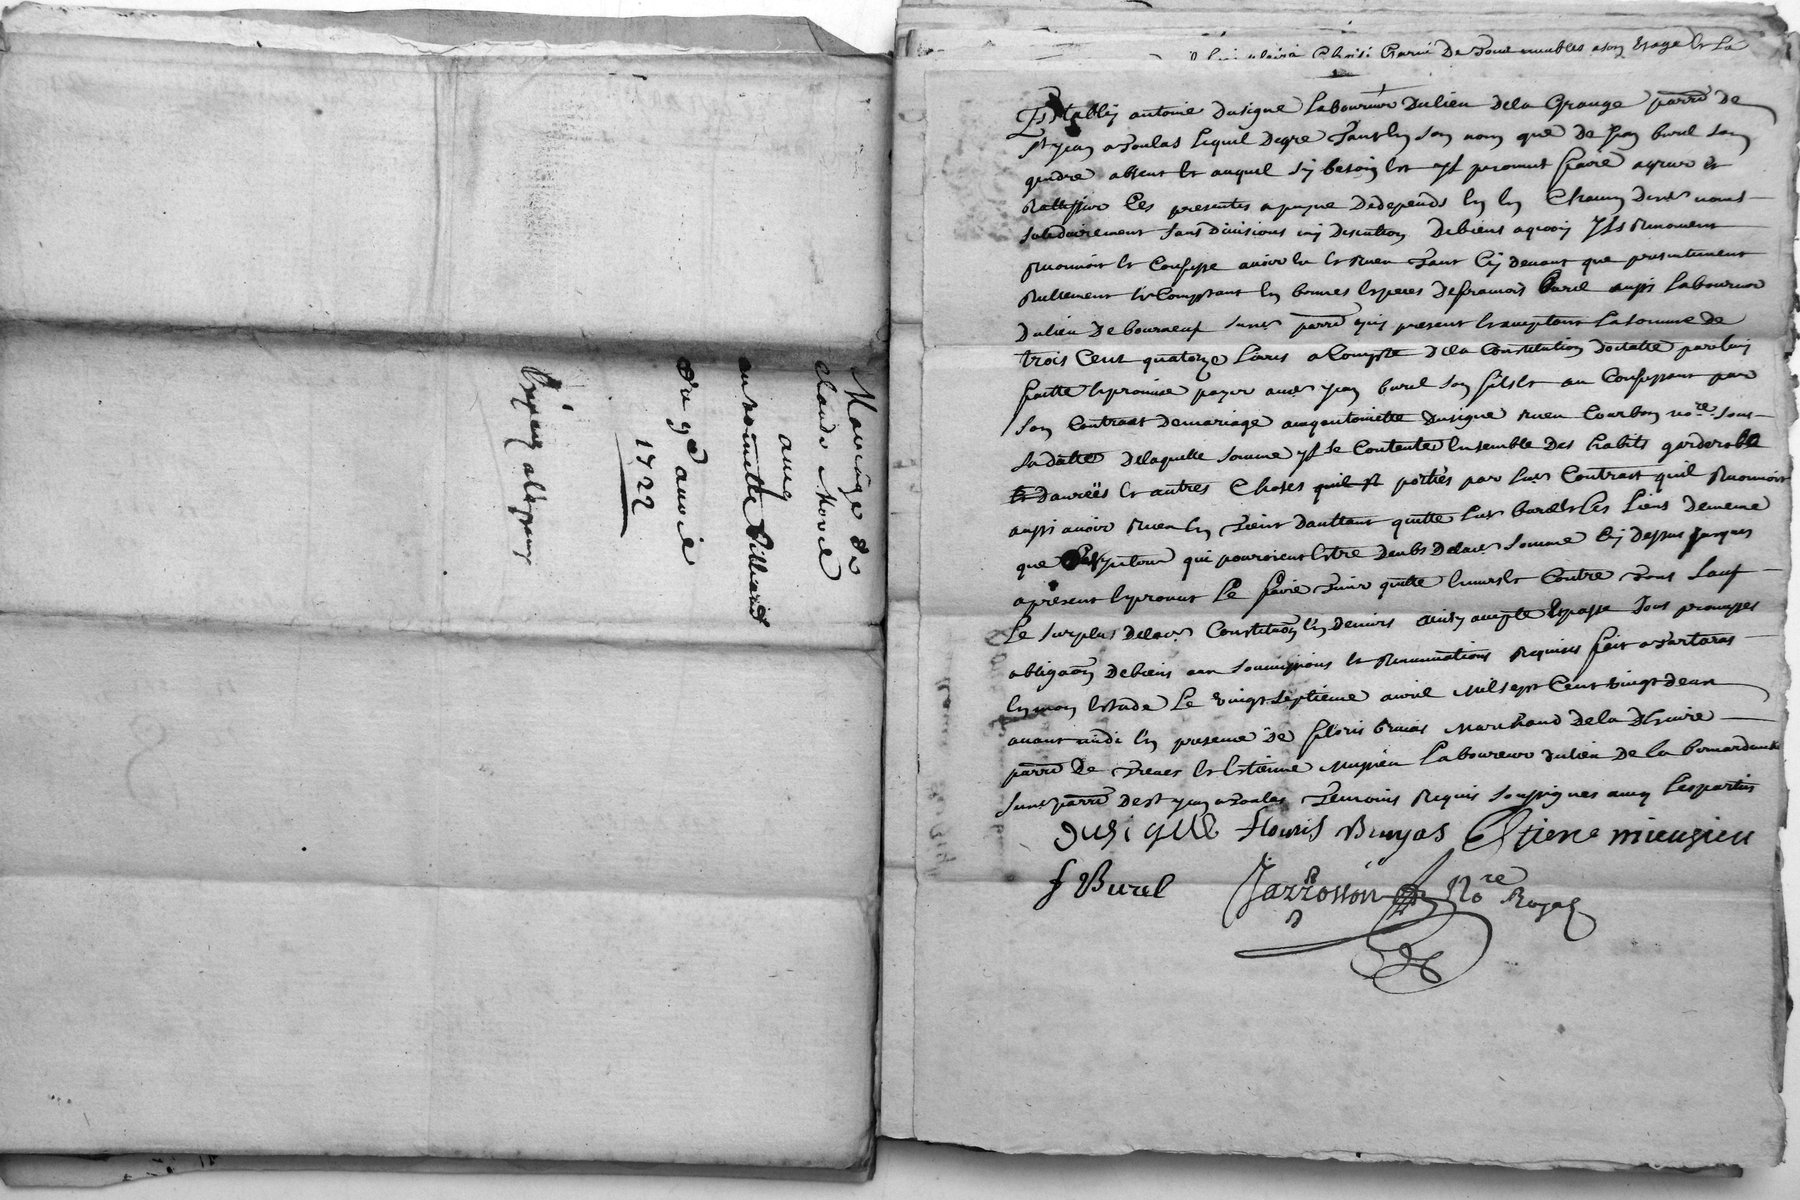 Mariage de
claude Morel
avec
anthoinette Billiard
du 9e avril
1722
Expédié al espouz
Establÿ antoine dusigne Laboureur du lieu de la Grange parre de
st jean a Toulas lequel de gre tant en son nom que de jean burel son
gendre absent et auquel sy besoin est yl promet faire agreer et
Rattiffier Ces presentes a peyne de depends en en Chacun deux nomes
solidairement sans divisions ny discution de biens a quoy yls Renoncent
Reconnoit et Confesse avoir eu et Receu tant Cy devant que presentement
Reellement et Comptant en bonnes especes de francois burel aussi Laboureur
du lieu de bourneuf susd. parre icy present et acceptant la somme de
trois Cent quatorze Livres a Compte de la Constitution dotalle par luy
faitte et promise payer aud. jean burel son fils et au Confessant par
son Contract de mariage avec antoinette dusigne receu Courbon nore. sous
sa datte de laquelle somme yl se Contente Ensemble des habits garderobe
et danrëes et autres Choses portées par led. Contract quil Reconnoit
aussi avoir Receu en tient dauttant quitte led. burel et les siens de meme
que des jnterest qui pouroient estre deubs de lad. somme Cy dessus jusques
a present et promet le faire tenir quitte envers et Contre tous sauf
Le surplus de lad. Constitution en deniers ainsy accepte Et passe sous promesses
obligaon de biens aux soumissions et Renonciations Requises fait a tartaras
en mon estude Le vingt septieme avril Mil sept Cent vingt deux
avant midi En presence de floris bruias Marchand de la Dhuire
parre de treves et Estienne Mussieu Laboureur du lieu de la bernardiere
susd. parre de st jean a toulas temoins Requis soussignes avec les parties
dusigne flouris Bruyas Etiene mieusieu
f Burel Jarrosson Nore Royal